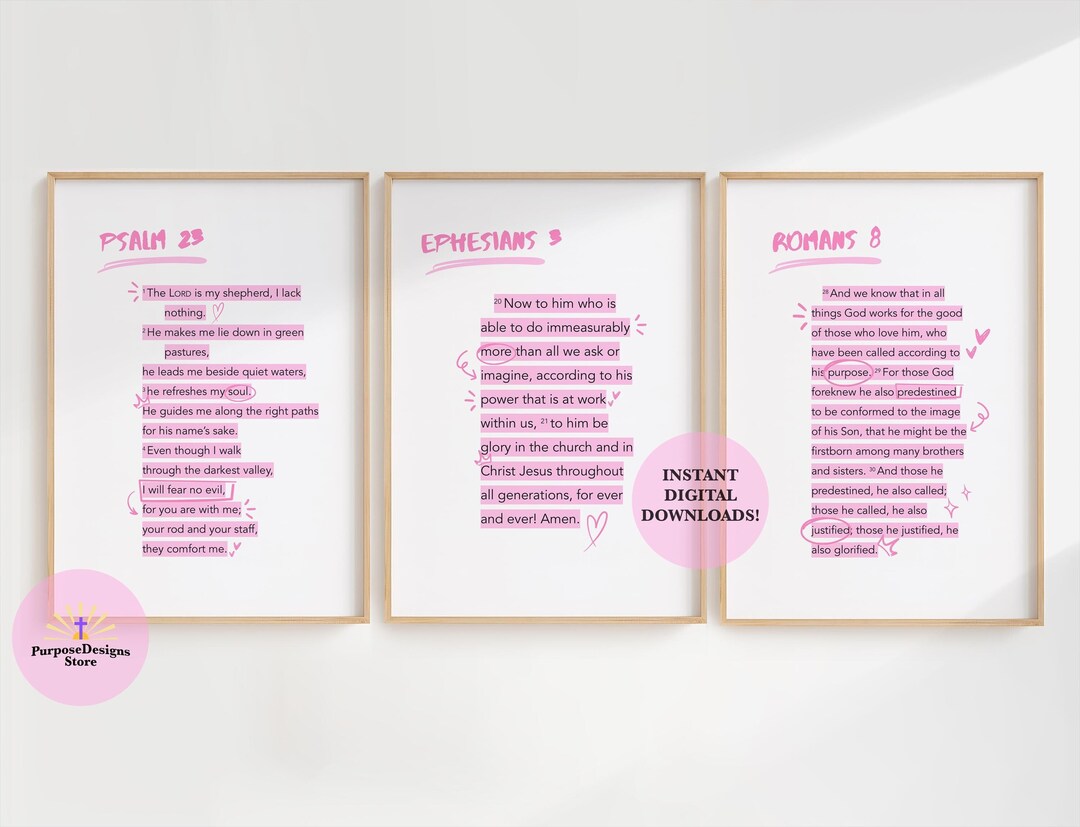 PSALM 23
¹The LORD is my shepherd, I lack
nothing.
²He makes me lie down in green
pastures,
he leads me beside quiet waters,
³he refreshes my soul.
He guides me along the right paths
for his name's sake.
⁴Even though I walk
through the darkest valley,
I will fear no evil,
for you are with me;
your rod and your staff,
they comfort me.
EPHESIANS 3
²⁰Now to him who is
able to do immeasurably
more than all we ask or
imagine, according to his
power that is at work
within us, ²¹to him be
glory in the church and in
Christ Jesus throughout
all generations, for ever
and ever! Amen.
ROMANS 8
²⁸And we know that in all
things God works for the good
of those who love him, who
have been called according to
his purpose. ²⁹For those God
foreknew he also predestined
to be conformed to the image
of his Son, that he might be the
firstborn among many brothers
and sisters. ³⁰And those he
predestined, he also called;
those he called, he also
justified; those he justified, he
also glorified.
INSTANT
DIGITAL
DOWNLOADS!
PurposeDesigns
Store